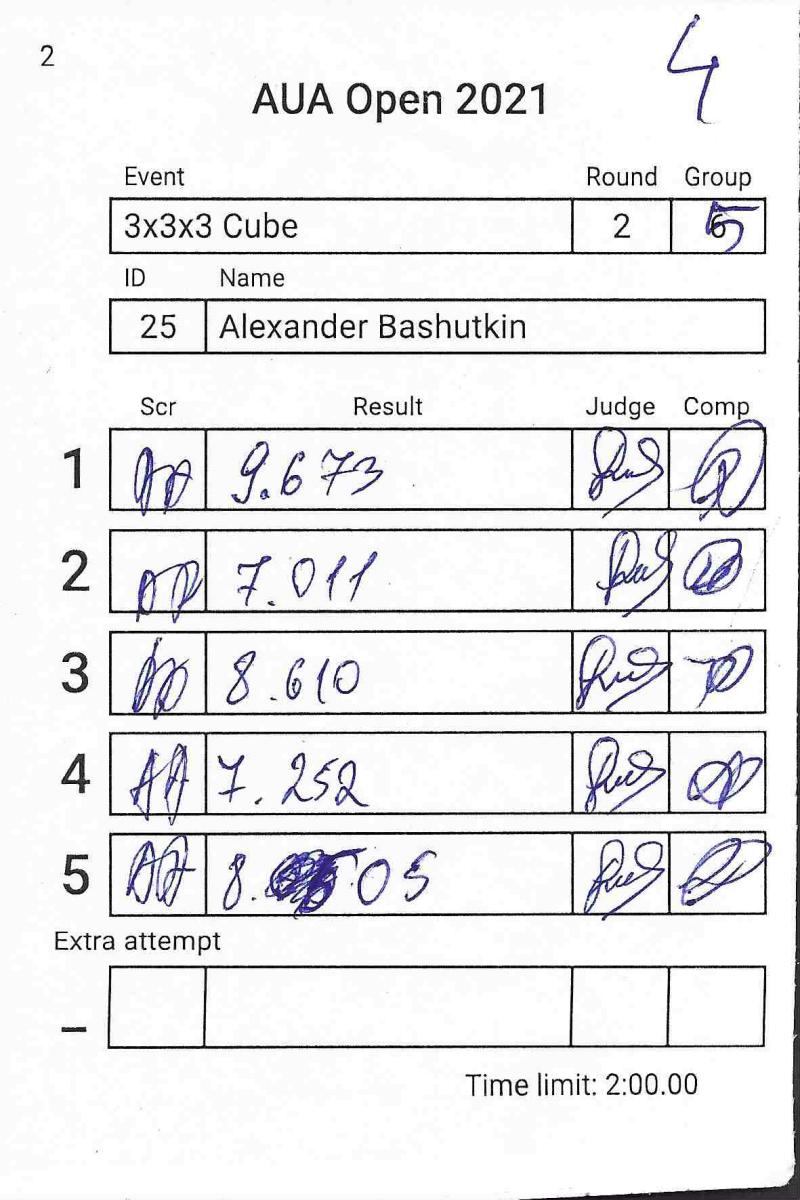 2
4
AUA Open 2021
Event Round Group
3x3x3 Cube 2 5
ID Name
25 Alexander Bashutkin
Scr Result Judge Comp
1 9.673
2 7.011
3 8.610
4 7.252
5 8. 05
Extra attempt
–
Time limit: 2:00.00